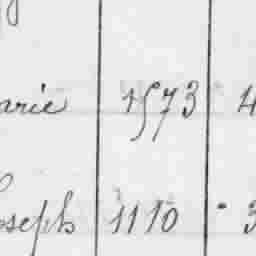 arie 1573 4
oseph 1110 · 3